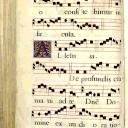 o confitebimur in
secula.
A Lleluia.
De profundis cla
maui ad te Dñe Do
mine exaudi oratio